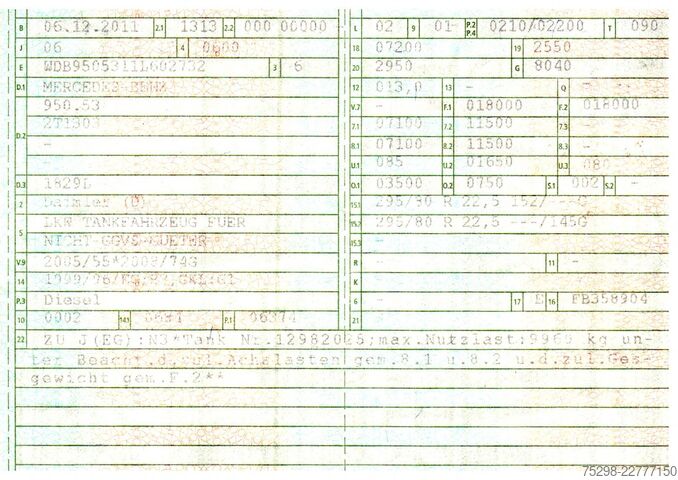 B 06.12.2011 2.1 1313 2.2 000 00000 L 02 9 01 P.2 P.4 0210/02200 T 090
J 06 4 0600 18 07200 19 2550
E 3 6 20 2950 G 8040
D.1 MERCEDES-BENZ 12 013,0 13 - Q -
950.53 V.7 - F.1 018000 F.2 018000
D.2 7.1 07100 7.2 11500 7.3 -
- 8.1 07100 8.2 11500 8.3 -
- U.1 085 U.2 01650 U.3 080
D.3 1829L O.1 03500 O.2 0750 S.1 002 S.2 -
2 Daimler (D) 15.1 295/80 R 22,5 152/---G
5 LKW TANKFAHRZEUG FUER 15.2 295/80 R 22,5 ---/145G
NICHT GGVS-GUETER 15.3 -
V.9 R - 11 -
14 K -
P.3 Diesel 6 - 17 E 16 FB358904
10 0002 14.1 P.1 21
22 ZU J(EG):N3*Tank max.Nutzlast: kg un-
ter Beacht.d.zul.Achslasten gem.8.1 u.8.2 u.d.zul.Ges-
gewicht gem.F.2**
75298-22777150